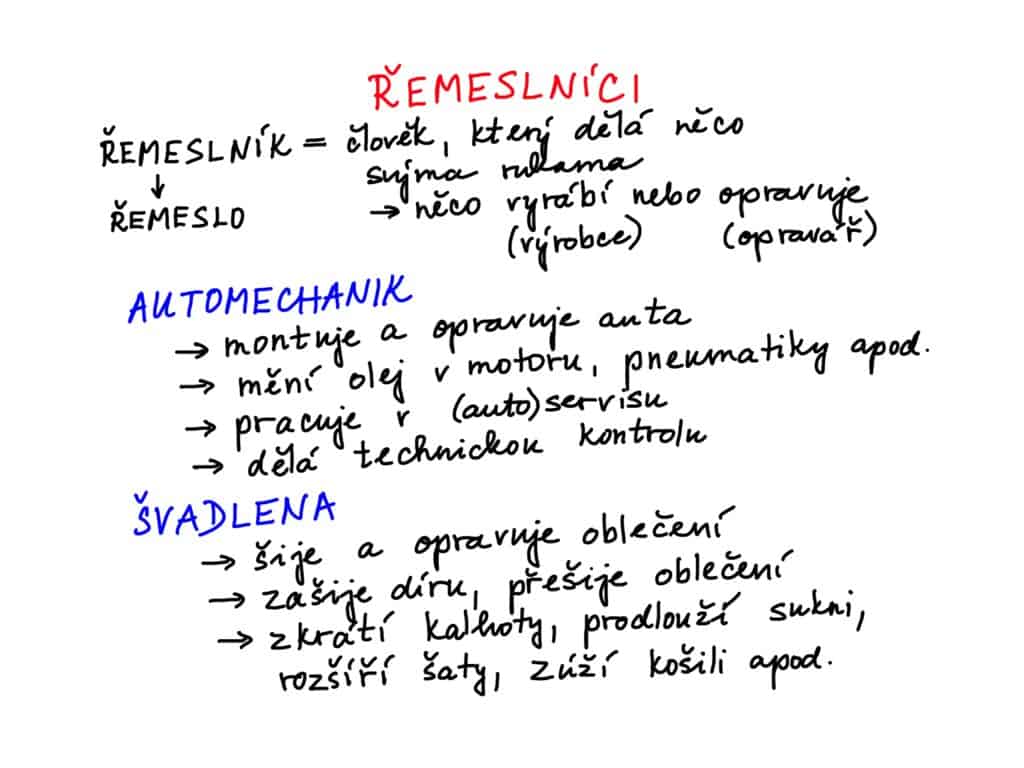 ŘEMESLNÍCI
ŘEMESLNÍK = člověk, který dělá něco
svýma rukama
↓
ŘEMESLO → něco vyrábí nebo opravuje
(výrobce) (opravář)
AUTOMECHANIK
→ montuje a opravuje auta
→ mění olej v motoru, pneumatiky apod.
→ pracuje v (auto)servisu
→ dělá technickou kontrolu
ŠVADLENA
→ šije a opravuje oblečení
→ zašije díru, přešije oblečení
→ zkrátí kalhoty, prodlouží sukni,
rozšíří šaty, zúží košili apod.